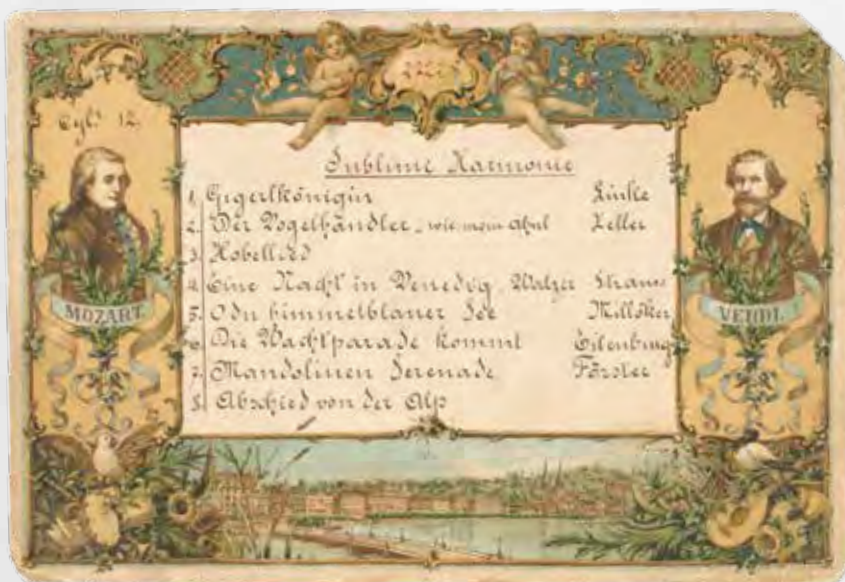 Cyl. 12.
Sublime Harmonie
1. Gigerlkönigin Linke
2. Der Vogelhändler - wie mein Ahnl Zeller
3. Hobellied
4. Eine Nacht in Venedig, Walzer Strauss
5. O du himmelblauer See Millöker
6. Die Wachtparade kommt Eilenburg
7. Mandolinen Serenade Förster
8. Abschied von der Alp
MOZART.
VERDI.